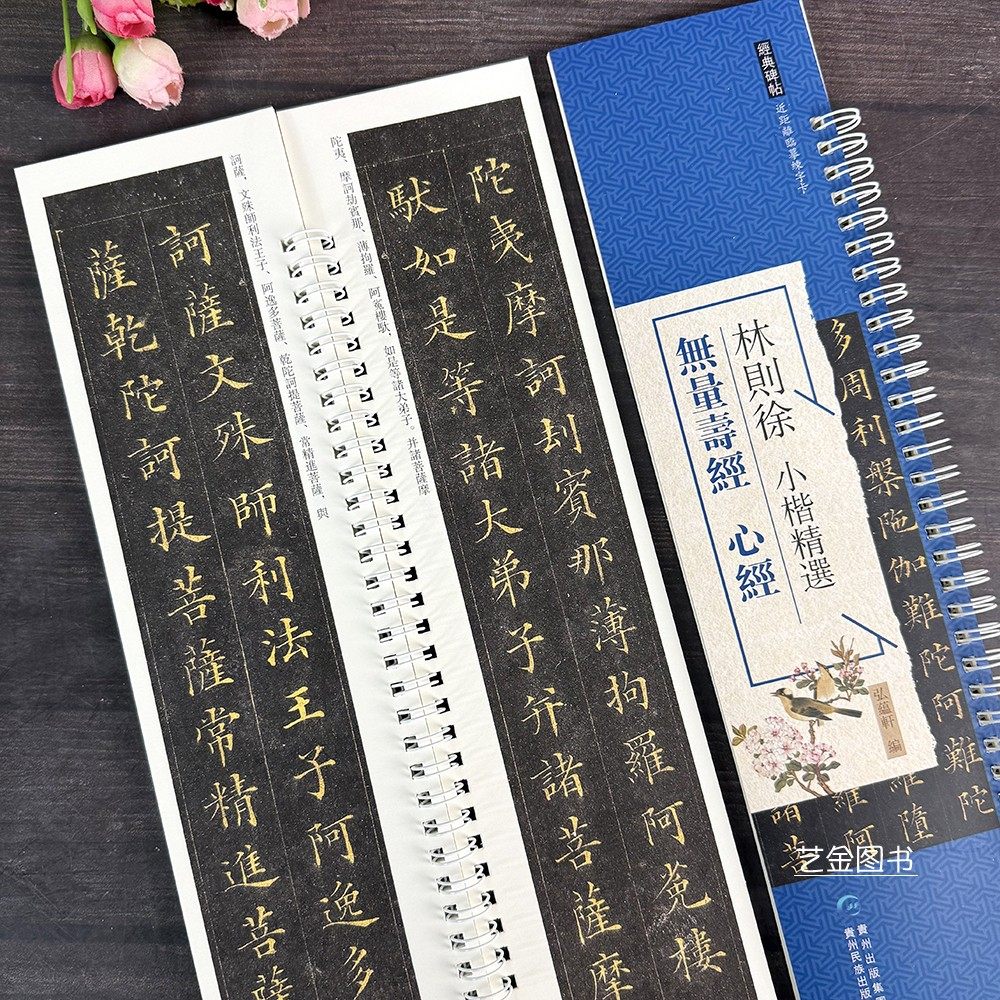 陀夷摩訶刦賓那薄拘羅阿菟樓
馱如是等諸大弟子并諸菩薩摩
陀夷、摩訶劫賓那、薄拘羅、阿㝹樓馱、如是等諸大弟子。并諸菩薩摩
訶薩、文殊師利法王子、阿逸多菩薩、乾陀訶提菩薩、常精進菩薩、與
訶薩文殊師利法王子阿逸多
薩乾陀訶提菩薩常精進菩薩
經典碑帖
近距離臨摹練字卡
林則徐 小楷精選
無量壽經 心經
弘蘊軒 編
多周利槃陁伽難陀阿難陀
羅墮
羅阿
諸菩
艺金图书
貴州出版集
貴州民族出版